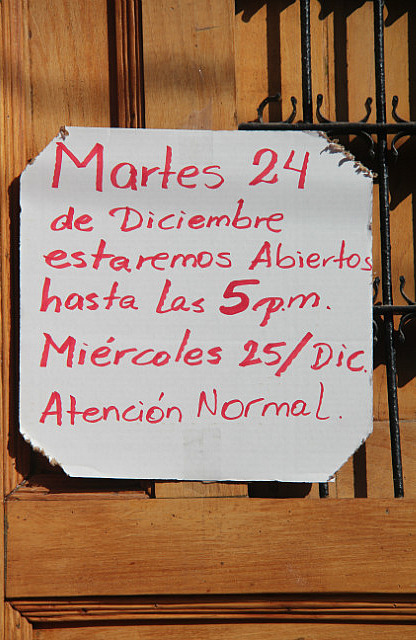 Martes 24
de Diciembre
estaremos Abiertos
hasta las 5 p.m.
Miércoles 25/Dic.
Atención Normal.